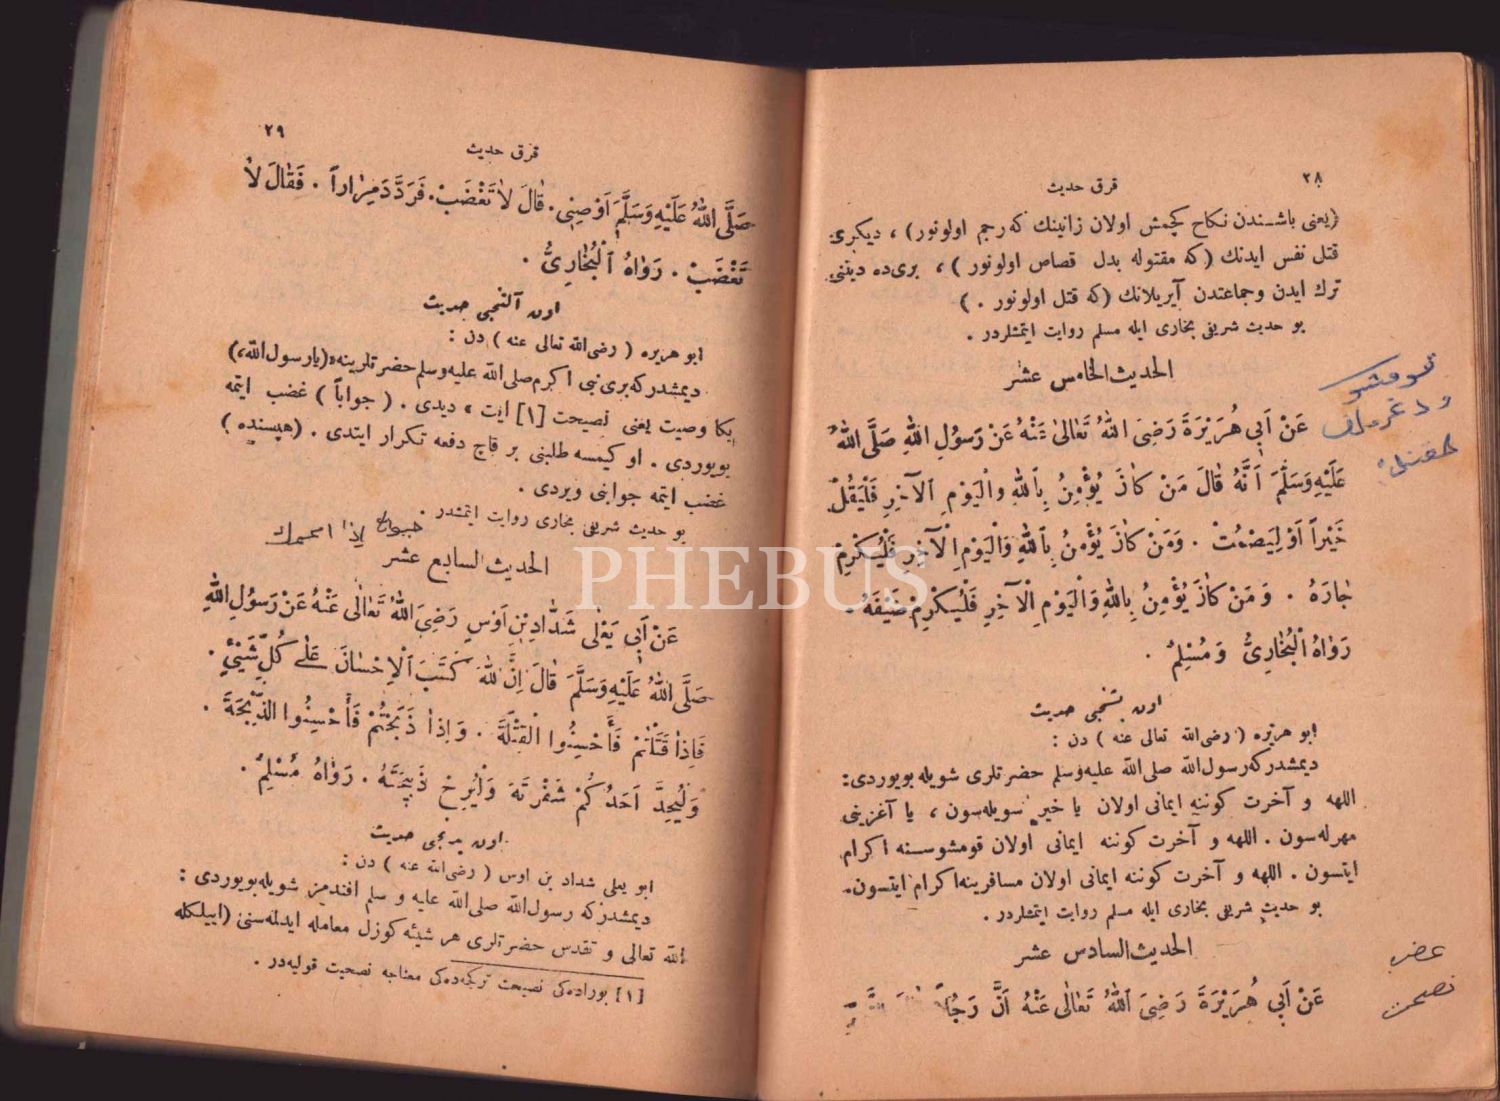 ٢٨
قرق حديث
(يعنى باشندن نكاح كچمش اولان زانينك كه رجم اولونور) ، ديكرى
قتل نفس ايدنك (كه مقتوله بدل قصاص اولونور ) ، برى ده دينى
ترك ايدن وجماعتدن آيريلانك (كه قتل اولونور . )
بو حديث شريفى بخارى ايله مسلم روايت ايتمشلردر .
الحديث الخامس عشر
عَنْ اَبِى هُرَيْرَةَ رَضِىَ اللّٰهُ تَعَالٰى عَنْهُ عَنْ رَسُولِ اللّٰهِ صَلَّى اللّٰهُ
عَلَيْهِ وَسَلَّمَ اَنَّهُ قَالَ مَنْ كَانَ يُؤْمِنُ بِاللّٰهِ وَالْيَوْمِ الْآخِرِ فَلْيَقُلْ
خَيْراً اَوْ لِيَصْمُتْ . وَمَنْ كَانَ يُؤْمِنُ بِاللّٰهِ وَالْيَوْمِ الْآخِرِ فَلْيُكْرِمْ
جَارَهُ . وَ مَنْ كَانَ يُؤْمِنُ بِاللّٰهِ وَالْيَوْمِ الْآخِرِ فَلْيُكْرِمْ ضَيْفَهُ .
رَوَاهُ الْبُخَارِىُّ وَ مُسْلِمٌ .
اون بشنجى حديث
ابو هريره ( رضى الله تعالى عنه ) دن :
ديمشدركه رسول الله صلى الله عليه وسلم حضرتلرى شويله بويوردى:
اللهه و آخرت كوننه ايمانى اولان يا خير سويله سون ، يا آغزينى
مهرله سون . اللهه و آخرت كوننه ايمانى اولان قومشوسنه اكرام
ايتسون . اللهه و آخرت كوننه ايمانى اولان مسافرينه اكرام ايتسون.
بو حديث شريفى بخارى ايله مسلم روايت ايتمشلردر .
الحديث السادس عشر
عَنْ اَبِى هُرَيْرَةَ رَضِىَ اللّٰهُ تَعَالٰى عَنْهُ اَنَّ رَجُلاً
نصيحت
٢٩
قرق حديث
صَلَّى اللّٰهُ عَلَيْهِ وَسَلَّمَ اَوْصِنِى . قَالَ لَا تَغْضَبْ . فَرَدَّدَ مِرَاراً . فَقَالَ لَا
تَغْضَبْ . رَوَاهُ الْبُخَارِىُّ .
اون آلتنجى حديث
ابو هريره ( رضى الله تعالى عنه ) دن :
ديمشدركه برى نبى اكرم صلى الله عليه وسلم حضرتلرينه «(يارسول الله،)
بكا وصيت يعنى نصيحت [١] ايت ، ديدى . ( جواباً ) غضب ايتمه
بويوردى . او كيمسه طلبنى بر قاچ دفعه تكرار ايتدى . (هپسنده )
غضب ايتمه جوابنى ويردى .
بو حديث شريفى بخارى روايت ايتمشدر .
الحديث السابع عشر
عَنْ اَبِى يَعْلٰى شَدَّادِ بْنِ اَوْسٍ رَضِىَ اللّٰهُ تَعَالٰى عَنْهُ عَنْ رَسُولِ اللّٰهِ
صَلَّى اللّٰهُ عَلَيْهِ وَسَلَّمَ قَالَ اِنَّ اللّٰهَ كَتَبَ الْاِحْسَانَ عَلٰى كُلِّ شَيْئٍ .
فَاِذَا قَتَلْتُمْ فَأَحْسِنُوا الْقِتْلَةَ . وَ اِذَا ذَبَحْتُمْ فَأَحْسِنُوا الذِّبْحَةَ .
وَلْيُحِدَّ اَحَدُكُمْ شَفْرَتَهُ وَلْيُرِحْ ذَبِيحَتَهُ . رَوَاهُ مُسْلِمٌ .
اون يدنجى حديث
ابو يعلى شداد بن اوس ( رضى الله عنه ) دن :
ديمشدركه رسول الله صلى الله عليه و سلم افندمز شويله بويوردى :
الله تعالى و تقدس حضرتلرى هر شيئه كوزل معامله ايدلمه سنى (ايیلكله
[١] بوراده كى نصيحت تركجه ده كى معناجه نصيحت قوليه در .
PHEBUS